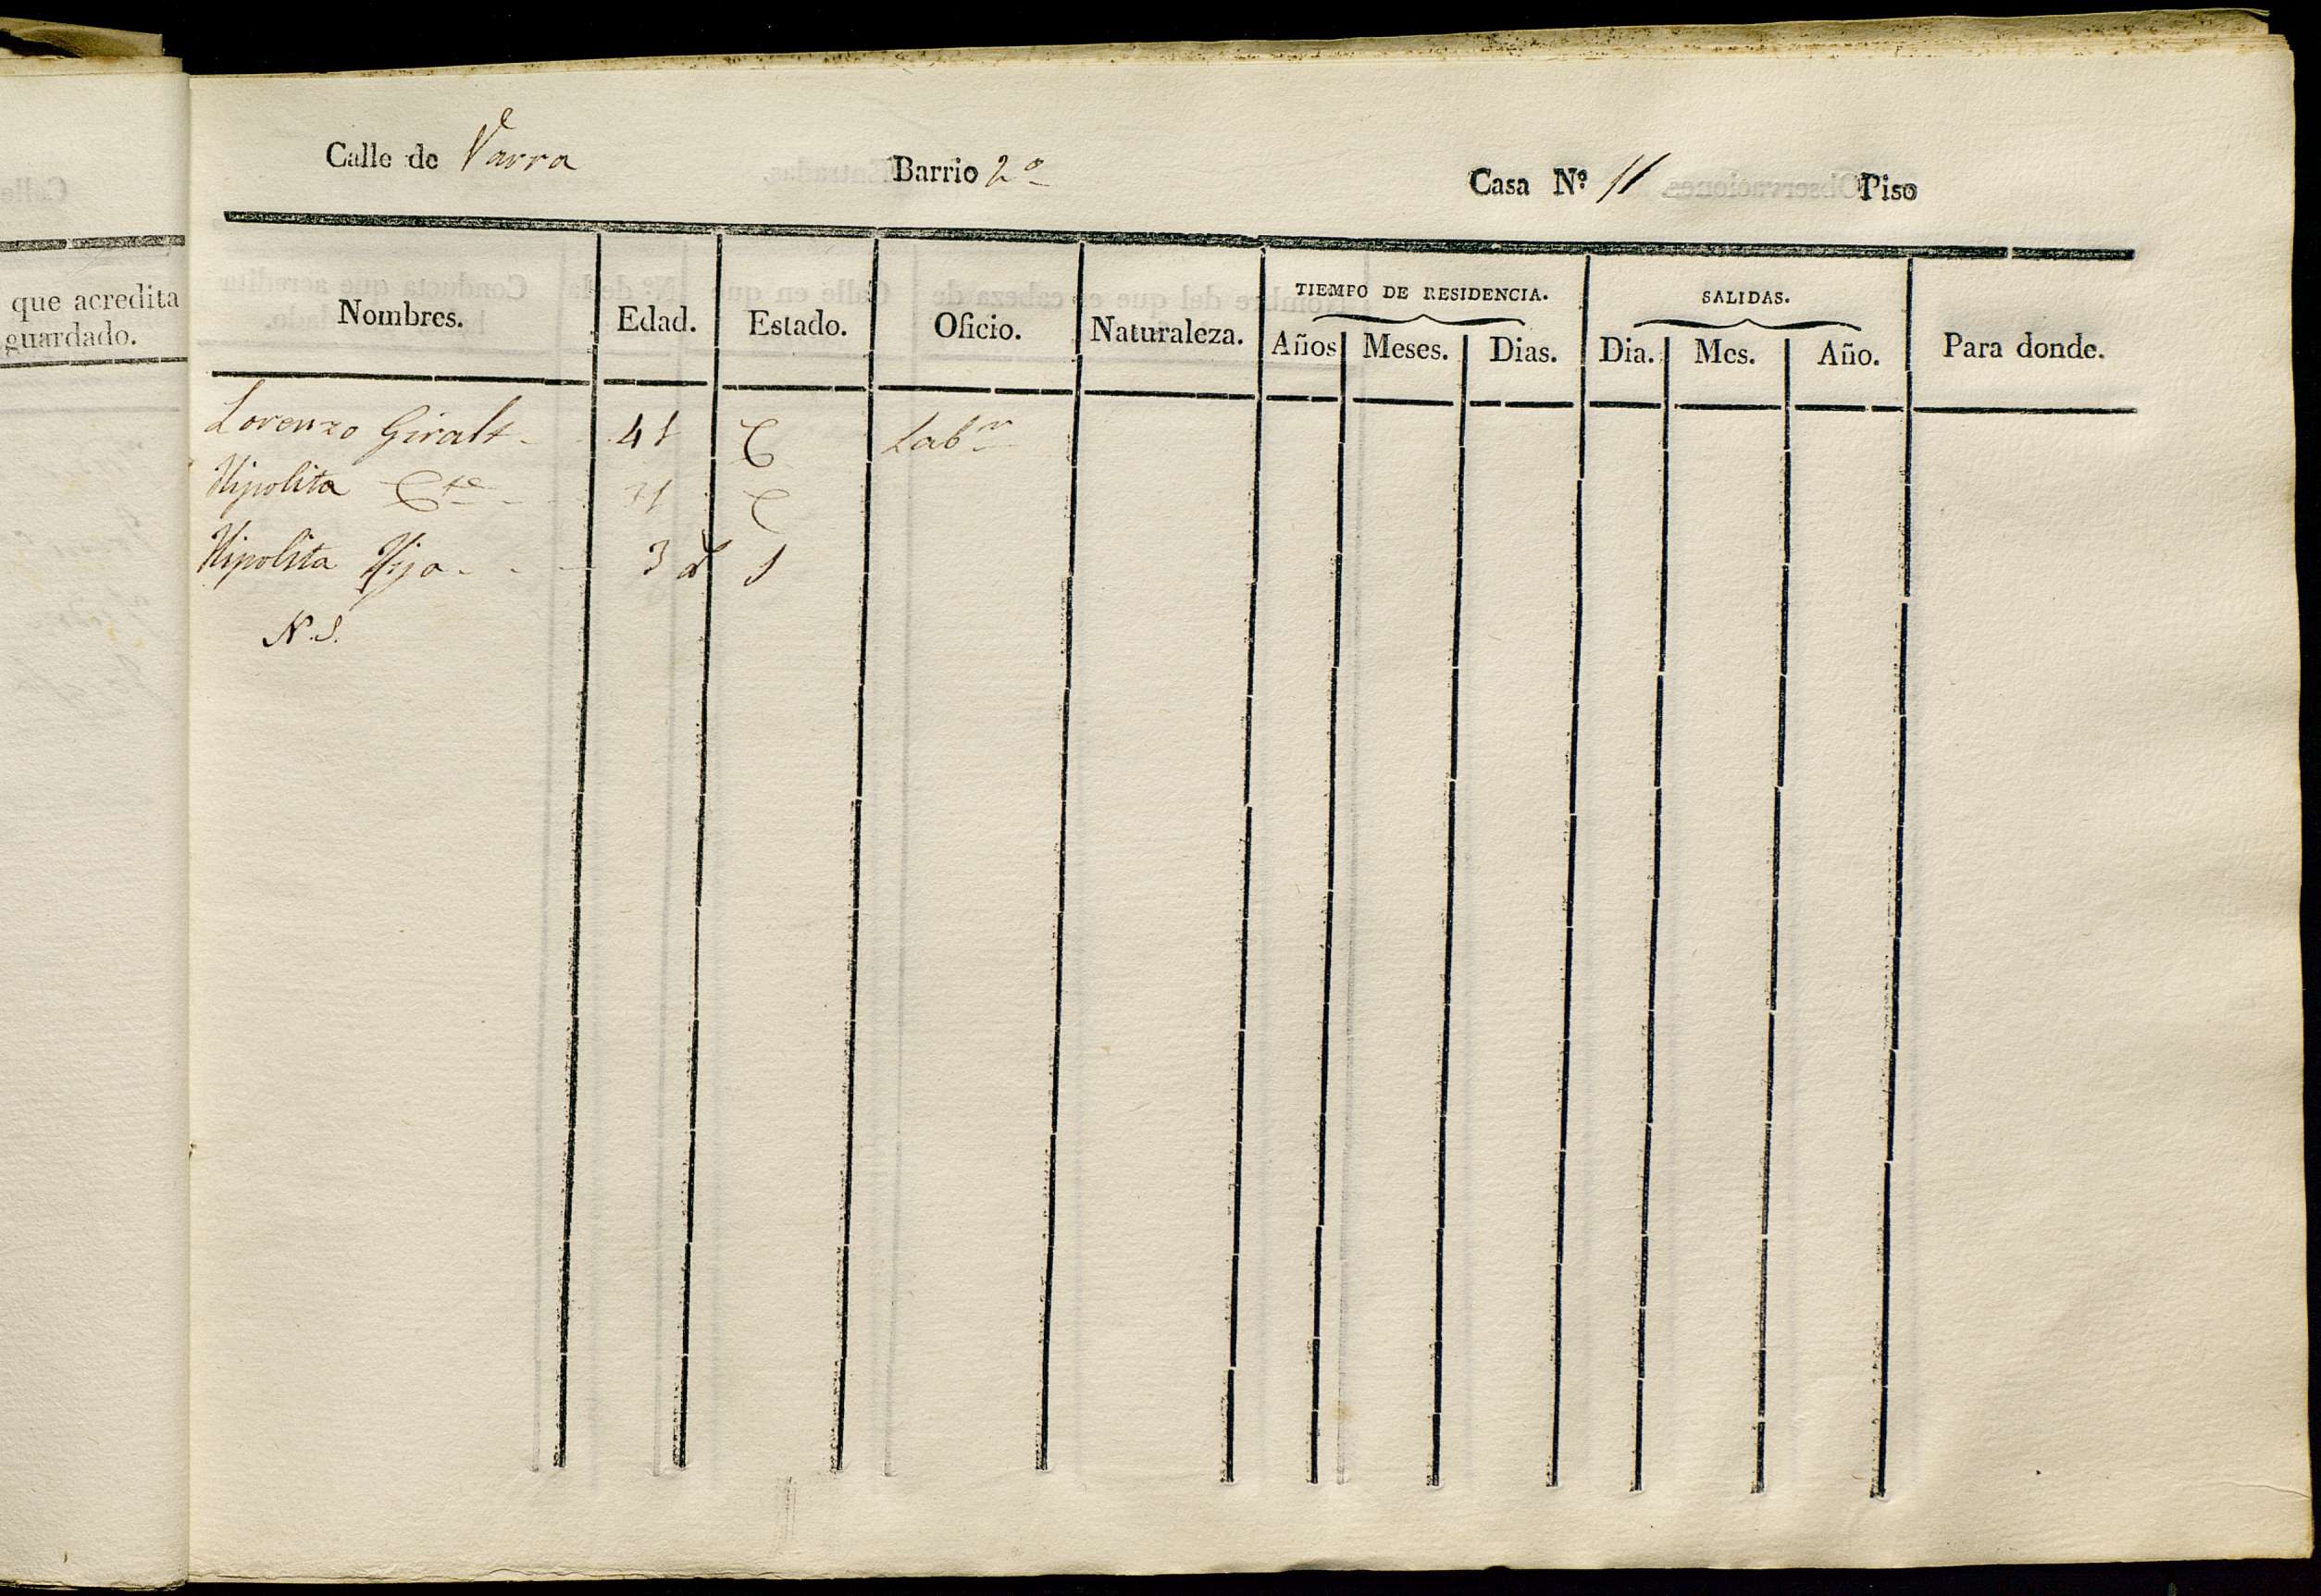 que acredita
guardado.
Calle de Varra Barrio 2º Casa Nº 11 Piso
Nombres. Edad. Estado. Oficio. Naturaleza. TIEMPO DE RESIDENCIA. Años Meses. Dias. SALIDAS. Dia. Mes. Año. Para donde.
Lorenzo Giralt 41 C Labr
Hipolita Cte C
Hipolita Hija 3 S
N.S.